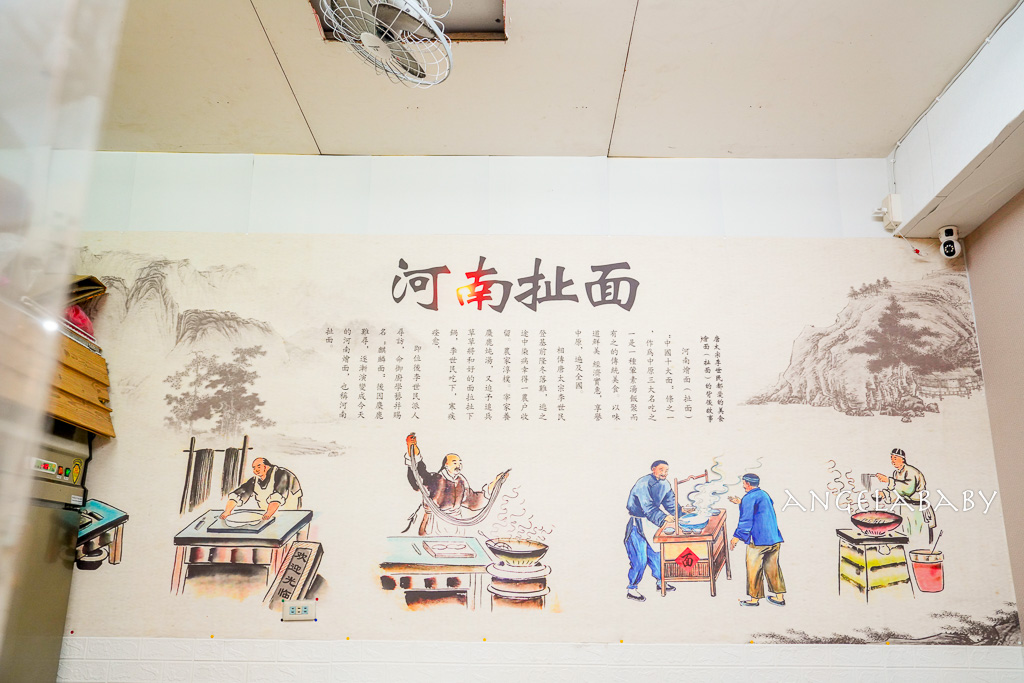 河南扯面
唐太宗李世民都愛的美食
燴面（扯面）的背後故事
河南燴面（扯面）
，中國十大面。條之一
、作為中原三大名吃之
一是一種葷素湯飯聚而
有之的傳統美食。以味
道鮮美 經濟實惠，享譽
中原，遍及全國。
相傳唐太宗李世民
登基前隆冬落難，逃之
途中染病幸得一農戶收
留。農家淳樸，宰家養
麋鹿燉湯，又追兵
草草將和好的面拉扯下
鍋，李世民吃下，寒疾
痊愈，
即位後李世民派人
尋訪，命御廚學藝并賜
名；麒麟面。後因麋鹿
難尋，逐漸演變成今天
的河南燴面，也稱河南
扯面
ANGELABABY
面
欢迎光临